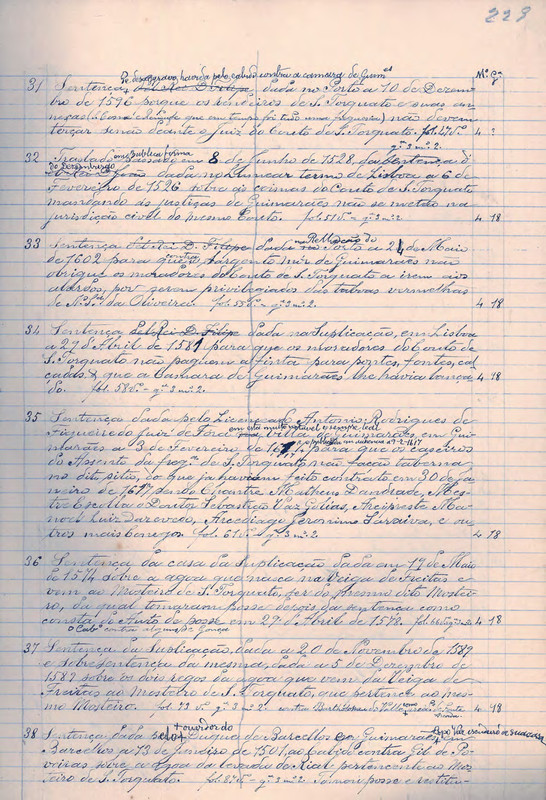 229
Mº Gª
De desagravo, havida pelo cabido contra a camara de Guimes
31 Sentença dada no Porto a 10 de Dezem
bro de 1596 porque os rendeiros de S. Torquato e suas an
nexas não devem
terçar senão deante o Juiz do Couto de S. Torquato. fol. 4
gª 3 mº 2.
32 Traslado em publica forma passado em 8 de Junho de 1528, da Sentença d
dada no termo de Lisboa a 6 de
Fevereiro de 1526 sobre as coimas do Couto de S. Torquato
mandando ás justiças de Guimarães não se metão na
jurisdição civel do mesmo Couto. fol. 51 vº = gª 3 mº 2. 4 18
33 Sentença del Rei D. Filipe dada na Rellação do Porto a 21 de Maio
de 1602 para que o sargento mór de Guimarães não
obrigue os moradores do Couto de S. Torquato a irem aos
alardos, por serem privilegiados das tabvas vermelhas
de N. Srª da Oliveira. fol. 55 vº = gª 3 mº 2. 4 18
34 Sentença del Rei D. Filipe dada na Suplicação, em Lisboa
a 29 d'Abril de 1581 para que os moradores do Couto de
S. Torquato não paguem a finta para pontes, fontes, cal
çadas & que a Camara de Guimarães lhe havia lança 4 18
do. fol. 58 vº = gª 3 mº 2.
35 Sentença dada pelo Licenceado Antonio Rodrigues de
Figueiredo Juiz de Fóra em esta muito notavel e sempre leal villa de Guimarães, em Gui
marães a 3 de Fevereiro de 1617, para que os caseiros
do Assento da fregª de S. Torquato não facão taberna
no dito sitio, do que já haviam feito contracto em 30 de Ja
neiro de 1617 sendo Chantre Matheus Dandrade, Mes
tre Escolla o Doutor Sebastião Vaz Golias, Arcipreste Ma
noel Luiz Dazevedo, Arcediago Jeronimo Saraiva, e ou
tros mais conegos. fol. 61 vº = gª 3 mº 2. 4 18
36 Sentença da casa da Suplicação dada em 19 de Maio
de 1574 sobre a agoa que nasce na Veiga de Freitas e
vem ao Mosteiro de S. Torquato, ser do mesmo dito Mostei
ro, da qual tomaram posse depois da sentença como
consta do Auto de posse em 29 d'Abril de 1578. fol. 66 vº gª 3 mº 2. 4 18
o Cabº contra
37 Sentença da Suplicação, dada a 20 de Novembro de 1589
e sobresentença da mesma, dada a 5 de Dezembro de
1589 sobre os dois regos da agoa que vem da Veiga de
Freitas ao Mosteiro de S. Torquato, que pertence ao mes
mo Mosteiro. fol. 73 vº gª 3 mº 2. contra Bartholomeu 4 18
38 Sentença dada pelo ouvidor do Duque de Barcellos em Guimarães
Barcellos a 13 de Janeiro de 1501, ao Cabido contra Gil de Po
veiras sobre a agoa da levada do Rial pertencente ao Mos
teiro de S. Torquato. fol. 87 vº = gª 3 mº 2. Tomou posse e restitu-